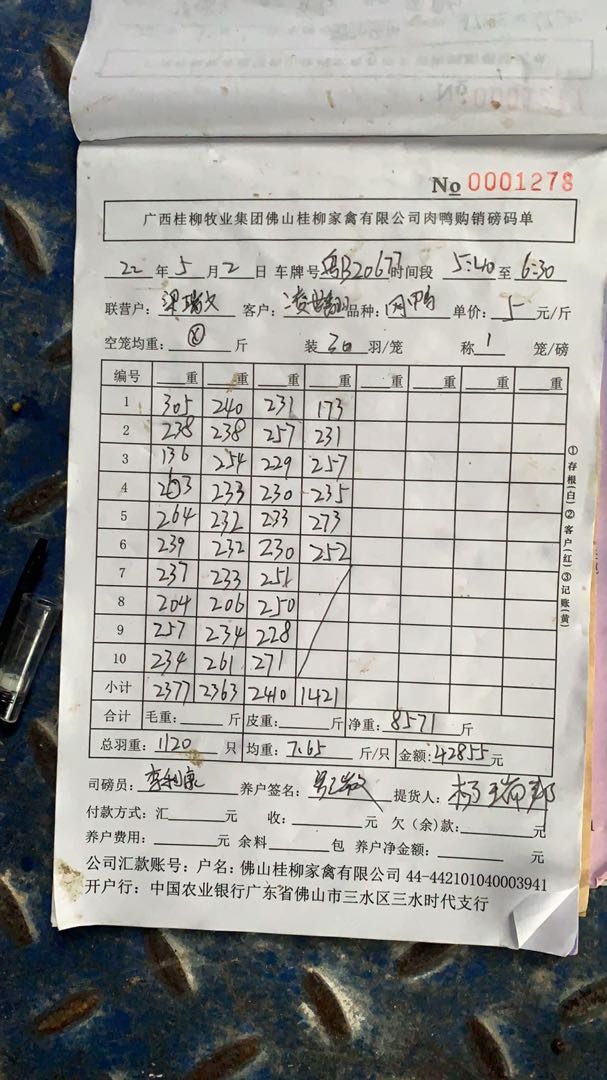 No 0001278
广西桂柳牧业集团佛山桂柳家禽有限公司肉鸭购销磅码单
22 年 5 月 2 日 车牌号 粤B20677 时间段 5:40 至 6:30
联营户: 客户: 品种: 肉鸭 单价: 5 元/斤
空笼均重: 斤 装 30 羽/笼 称 1 笼/磅
编号 重 重 重 重 重 重 重 重
1 305 240 231 173
2 238 238 257 231
3 136 254 229 257
4 263 233 230 235
5 264 232 233 273
6 239 232 230 252
7 237 233 251
8 204 206 250
9 257 234 228
10 234 261 271
小计 2377 2363 2410 1421
合计 毛重: 斤 皮重: 斤 净重: 8571 斤
总羽重: 1120 只 均重: 7.65 斤/只 金额: 42855 元
司磅员: 李利康 养户签名: 提货人:
付款方式: 汇 元 收: 元 欠(余)款: 元
养户费用: 元 余料 包 养户净金额: 元
公司汇款账号: 户名: 佛山桂柳家禽有限公司 44-442101040003941
开户行: 中国农业银行广东省佛山市三水区三水时代支行
①存根(白)②客户(红)③记账(黄)